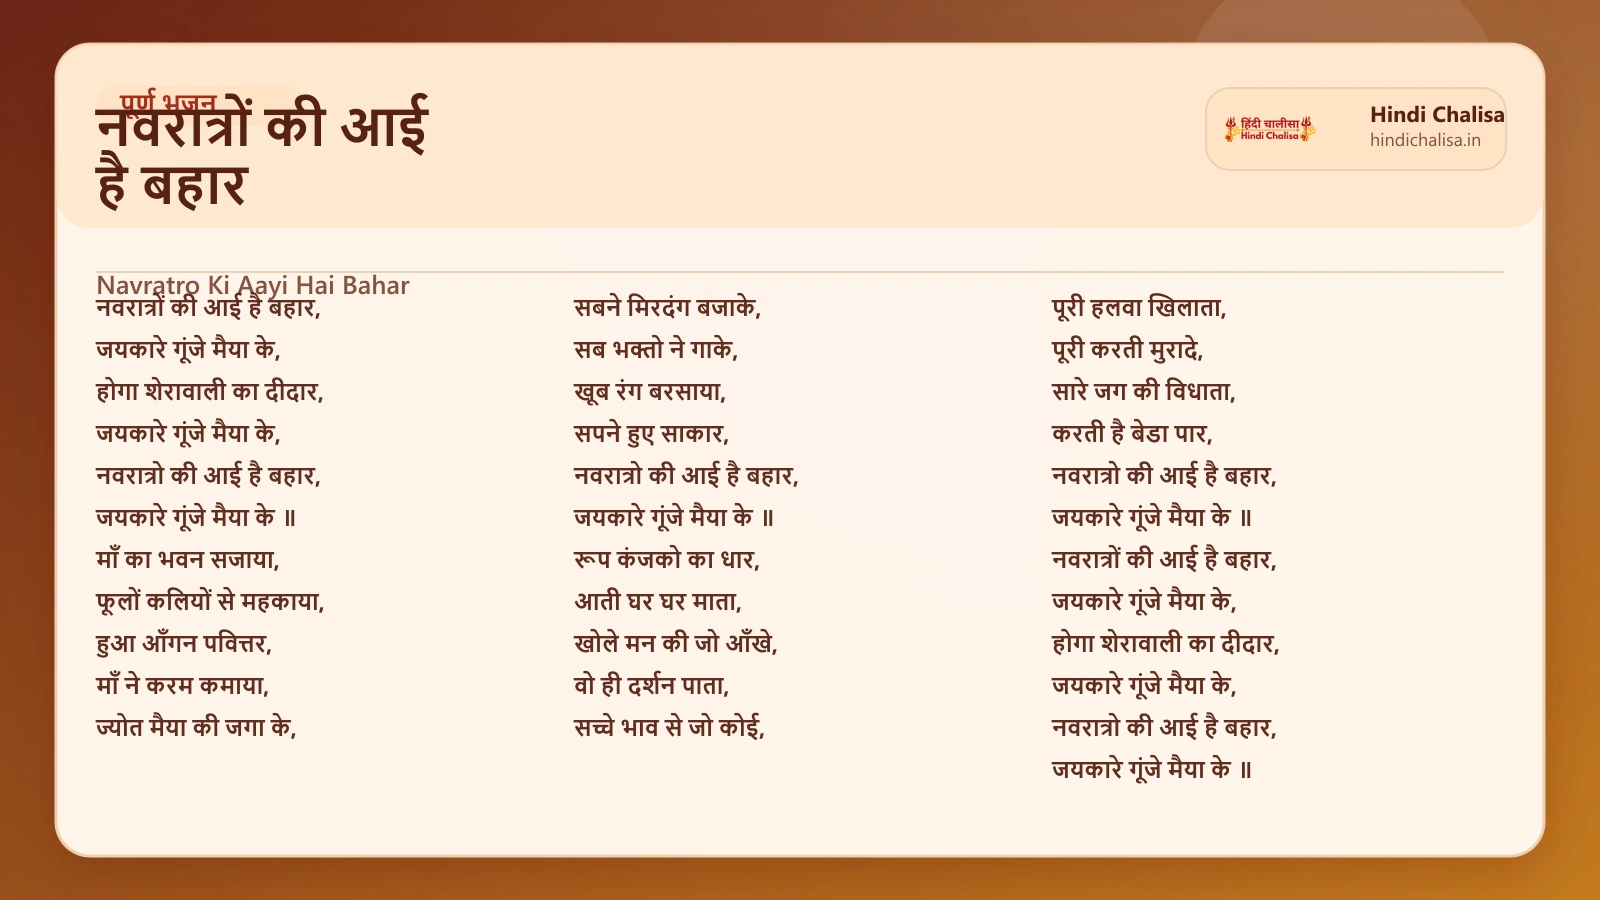 पूर्ण भजन
नवरात्रों की आई
है बहार
हिंदी चालीसा
Hindi Chalisa
Hindi Chalisa
hindichalisa.in
Navratro Ki Aayi Hai Bahar
नवरात्रों की आई है बहार,
जयकारे गूंजे मैया के,
होगा शेरावाली का दीदार,
जयकारे गूंजे मैया के,
नवरात्रो की आई है बहार,
जयकारे गूंजे मैया के ॥
माँ का भवन सजाया,
फूलों कलियों से महकाया,
हुआ आँगन पवित्तर,
माँ ने करम कमाया,
ज्योत मैया की जगा के,
सबने मिरदंग बजाके,
सब भक्तो ने गाके,
खूब रंग बरसाया,
सपने हुए साकार,
नवरात्रो की आई है बहार,
जयकारे गूंजे मैया के ॥
रूप कंजको का धार,
आती घर घर माता,
खोले मन की जो आँखे,
वो ही दर्शन पाता,
सच्चे भाव से जो कोई,
पूरी हलवा खिलाता,
पूरी करती मुरादे,
सारे जग की विधाता,
करती है बेडा पार,
नवरात्रो की आई है बहार,
जयकारे गूंजे मैया के ॥
नवरात्रों की आई है बहार,
जयकारे गूंजे मैया के,
होगा शेरावाली का दीदार,
जयकारे गूंजे मैया के,
नवरात्रो की आई है बहार,
जयकारे गूंजे मैया के ॥